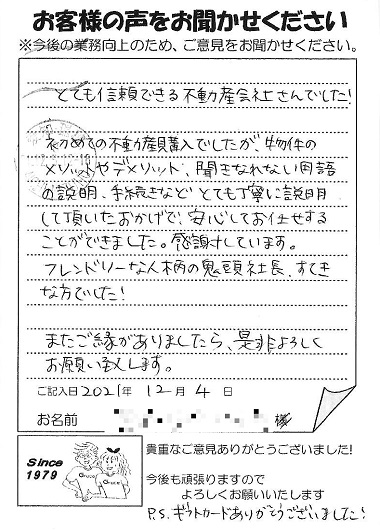 お客様の声をお聞かせください
※今後の業務向上のため、ご意見をお聞かせください。
とても信頼できる不動産会社さんでした!
初めての不動産購入でしたが、物件の
メリットやデメリット、聞きなれない用語
の説明、手続きなどとても丁寧に説明
して頂いたおかげで、安心してお任せする
ことができました。感謝しています。
フレンドリーな人柄の鬼頭社長、すてき
な方でした!
またご縁がありましたら、是非よろしく
お願い致します。
ご記入日 2021年 12月 4日
お名前 様
Since
1979
貴重なご意見ありがとうございました!
今後も頑張りますので
よろしくお願いいたします
P.S. ギフトカードありがとうございました!